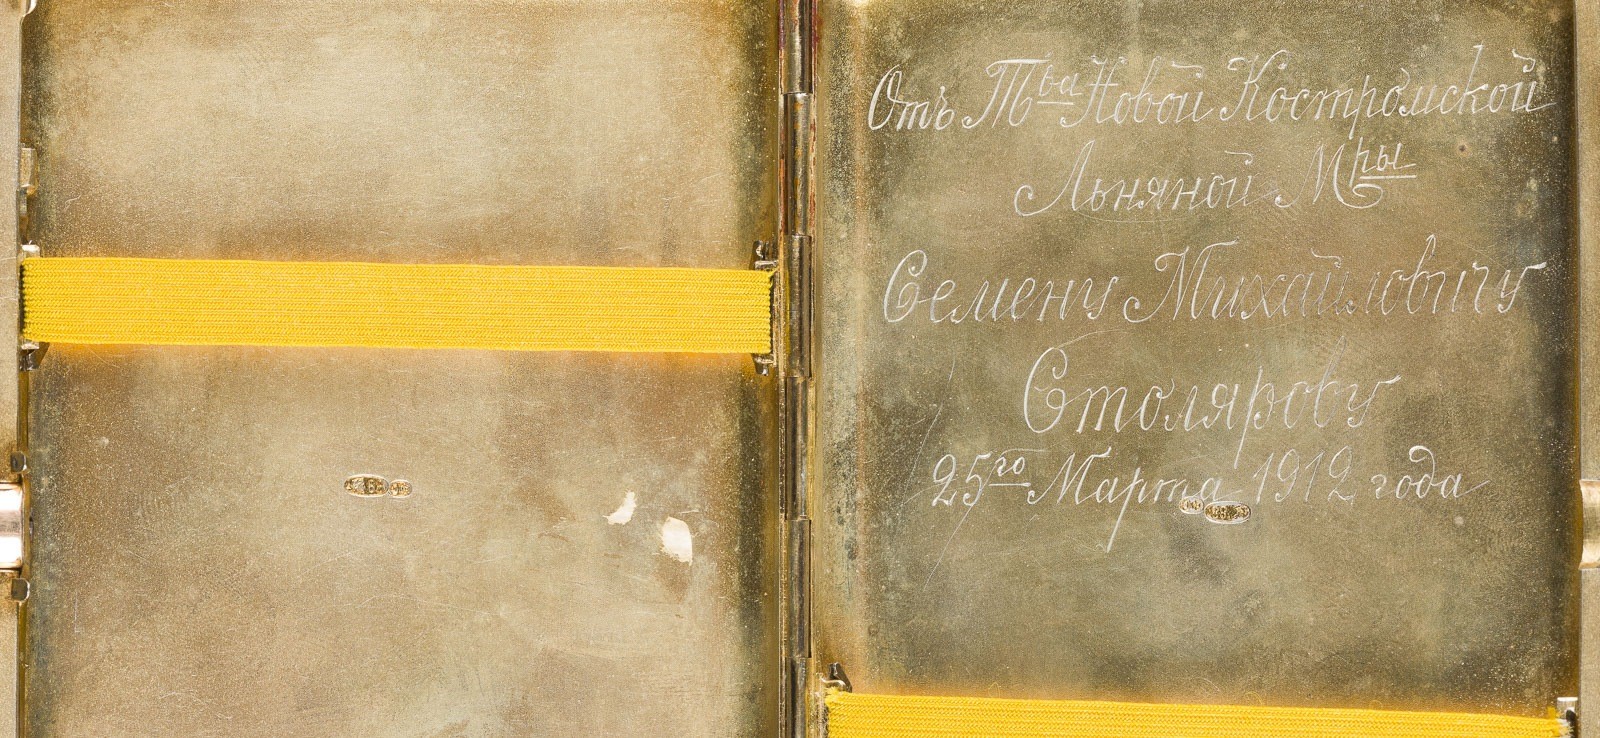 Отъ Т<sup>ва</sup> Новой Костромской
Льняной М<sup>ры</sup>
Семену Михайловичу
Столярову
25<sup>го</sup> Марта 1912 года